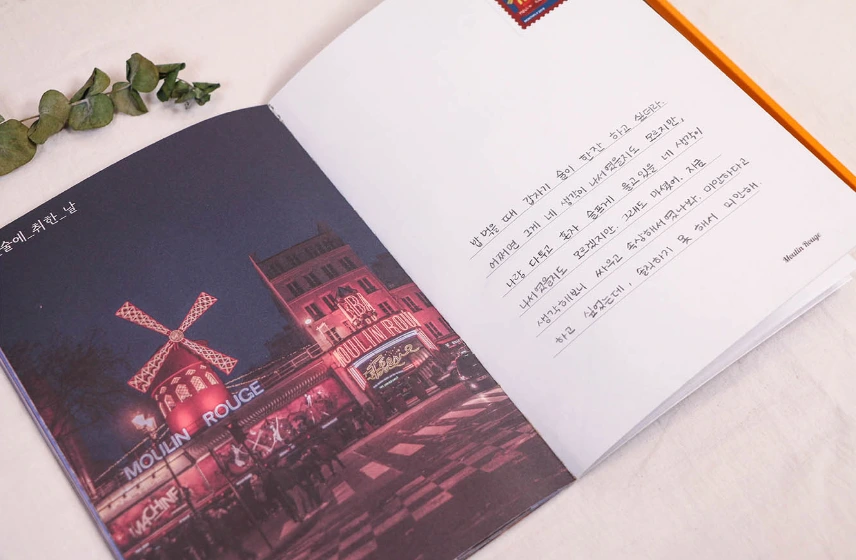 술에_취한_날
MOULIN ROUGE
MACHINE
MOULIN ROUGE
Féerie
밥 먹을 때 갑자기 술이 한잔 하고 싶더라.
어쩌면 그게 네 생각이 나서였을지도 모르지만,
나랑 다투고 혼자 슬프게 울고있을 네 생각이
나서였을지도 모르겠지만. 그래도 마셨어. 지금
생각해보니 싸우고 속상해서 였나봐. 미안하다고
하고 싶었는데, 솔직하지 못 해서 미안해.
Moulin Rouge